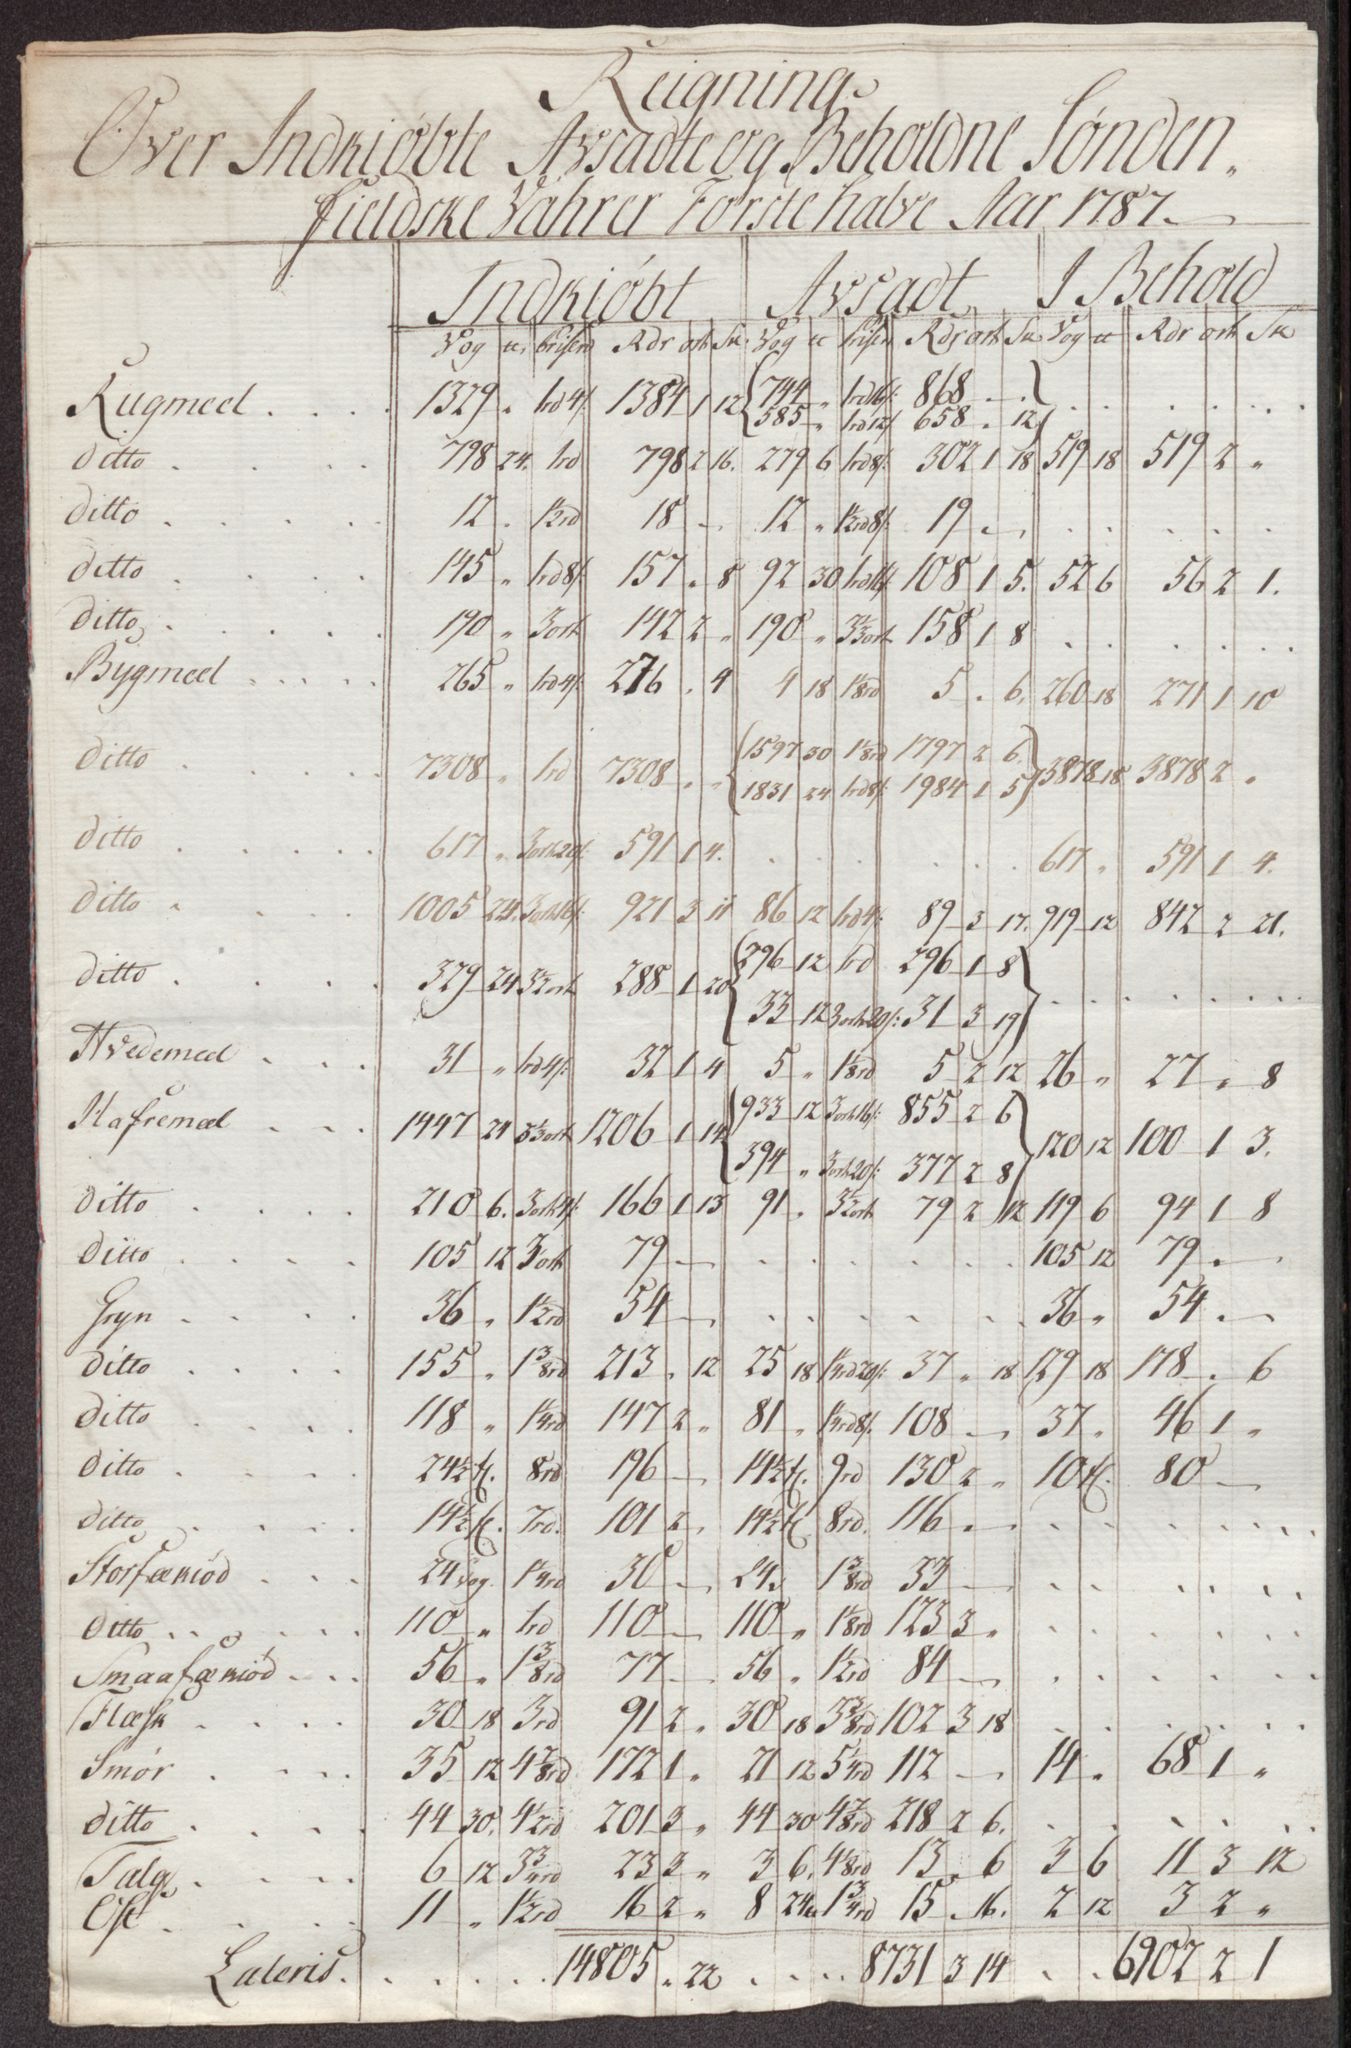 Reigning
Over Indkiøbte Avsadte og Beholdne Sønden„
fieldske Vahrer Første halve Aar 1787.
Indkiøbt Avsadt I Behold
Vog ℔ Prisen Rdr ort Sk. Vog ℔ Prisen Rdr ort Sk Vog ℔ Rdr ort Sk
Rugmeel . . . . 1329 „ 1rd4s. 1384 1 12 744 „ 1rd16s: 868 . —
585 „ 1rd12s 658 „ 12
ditto . . . . 798 24. 1rd 798 2 16. 279 6 1rd8s: 302 1 18 519 18 519 2 „
ditto . . . . 12 „ 1½rd 18 — 12 „ 1½rd8s. 19 —
ditto . . . . 145 „ 1rd8s. 157 „ 8 92 30 1rd16s 108 1 5. 52 6 56 2 1.
ditto . . . . 190 „ 3ort 142 2 „ 190 „ 3⅓ort 158 1 8
Bÿgmeel . . . . 265 „ 1rd4s. 276 „ 4 4 18 1⅛rd 5 „ 6. 260 18 271 1 10
ditto . . . . 7308 „ 1rd 7308 „ „ 1597 30 1⅛rd 1797 2 6. 3878 18 3878 2 „
1831 24 1rd8s: 1984 1 5
ditto . . . . 617 „ 3ort20s: 591 1 4. 617 „ 591 1 4.
ditto . . . . 1005 24. 3ort16s: 921 3 11 86 12 1rd4s: 89 3 17. 919 12 842 2 21.
ditto . . . . 329 24 3½ort 288 1 20 296 12 1rd 296 1 8
33 12 3ort20s: 31 3 19
Hvedemeel . . . 31 „ 1rd4s: 32 1 4 5 „ 1⅛rd 5 2 12 26 „ 27 „ 8
Hafremeel . . . 1447 24 3⅓ort 1206 1 14 933 12 3ort16s: 855 2 6 120 12 100 1 3.
394 „ 3ort20s: 377 2 8
ditto . . . . 210 6. 3ort4s: 166 1 13 91 „ 3½ort 79 2 12 119 6 94 1 8
ditto . . . . 105 12 3ort 79 — 105 12 79 . —
Gryn . . . . 36 „ 1½rd 54 — 36 „ 54 . —
ditto . . . . 155 „ 1⅜rd 213 „ 12 25 18 1¼rd20s: 37 „ 18 129 18 178 „ 6
ditto . . . . 118 „ 1¼rd 147 2 „ 81 „ 1¼rd8s. 108 — 37 „ 46 1 „
ditto . . . . 24½ t. 8rd 196 — 14½ t. 9rd 130 2 „ 10 t. 80 —
ditto . . . . 14½ t. 7rd. 101 2 „ 14½ t. 8rd. 116 . —
Storfækiød . . . 24 Vog. 1¼rd 30 — 24„ 1⅜rd 33 —
ditto . . . . 110 „ 1rd 110 — 110 „ 1⅛rd 123 3 „
Smaafækiød . . . 56 „ 1⅜rd 77 — 56 „ 1½rd 84 —
Flæsk . . . . 30 18 3rd 91 2 „ 30 18 3⅜rd 102 3 18
Smør . . . . 35 12 4⅞rd 172 1 „ 21 12 5¼rd 112 — 14 „ 68 1 „
ditto . . . . 44 30. 4½rd 201 3 „ 44 30 4⅞rd 218 2 6.
Talg . . . . 6 12 3¾rd 23 3 „ 3 6. 4⅛rd 13 „ 6 3 6 11 3 12
Ost . . . . 11 „ 1½rd 16 2 „ 8 24 1¾rd 15 „ 16. 2 12 3 2 „
Lateris . . . . 14805 „ 22 . . . . 8731 3 14 . . 6902 2 1